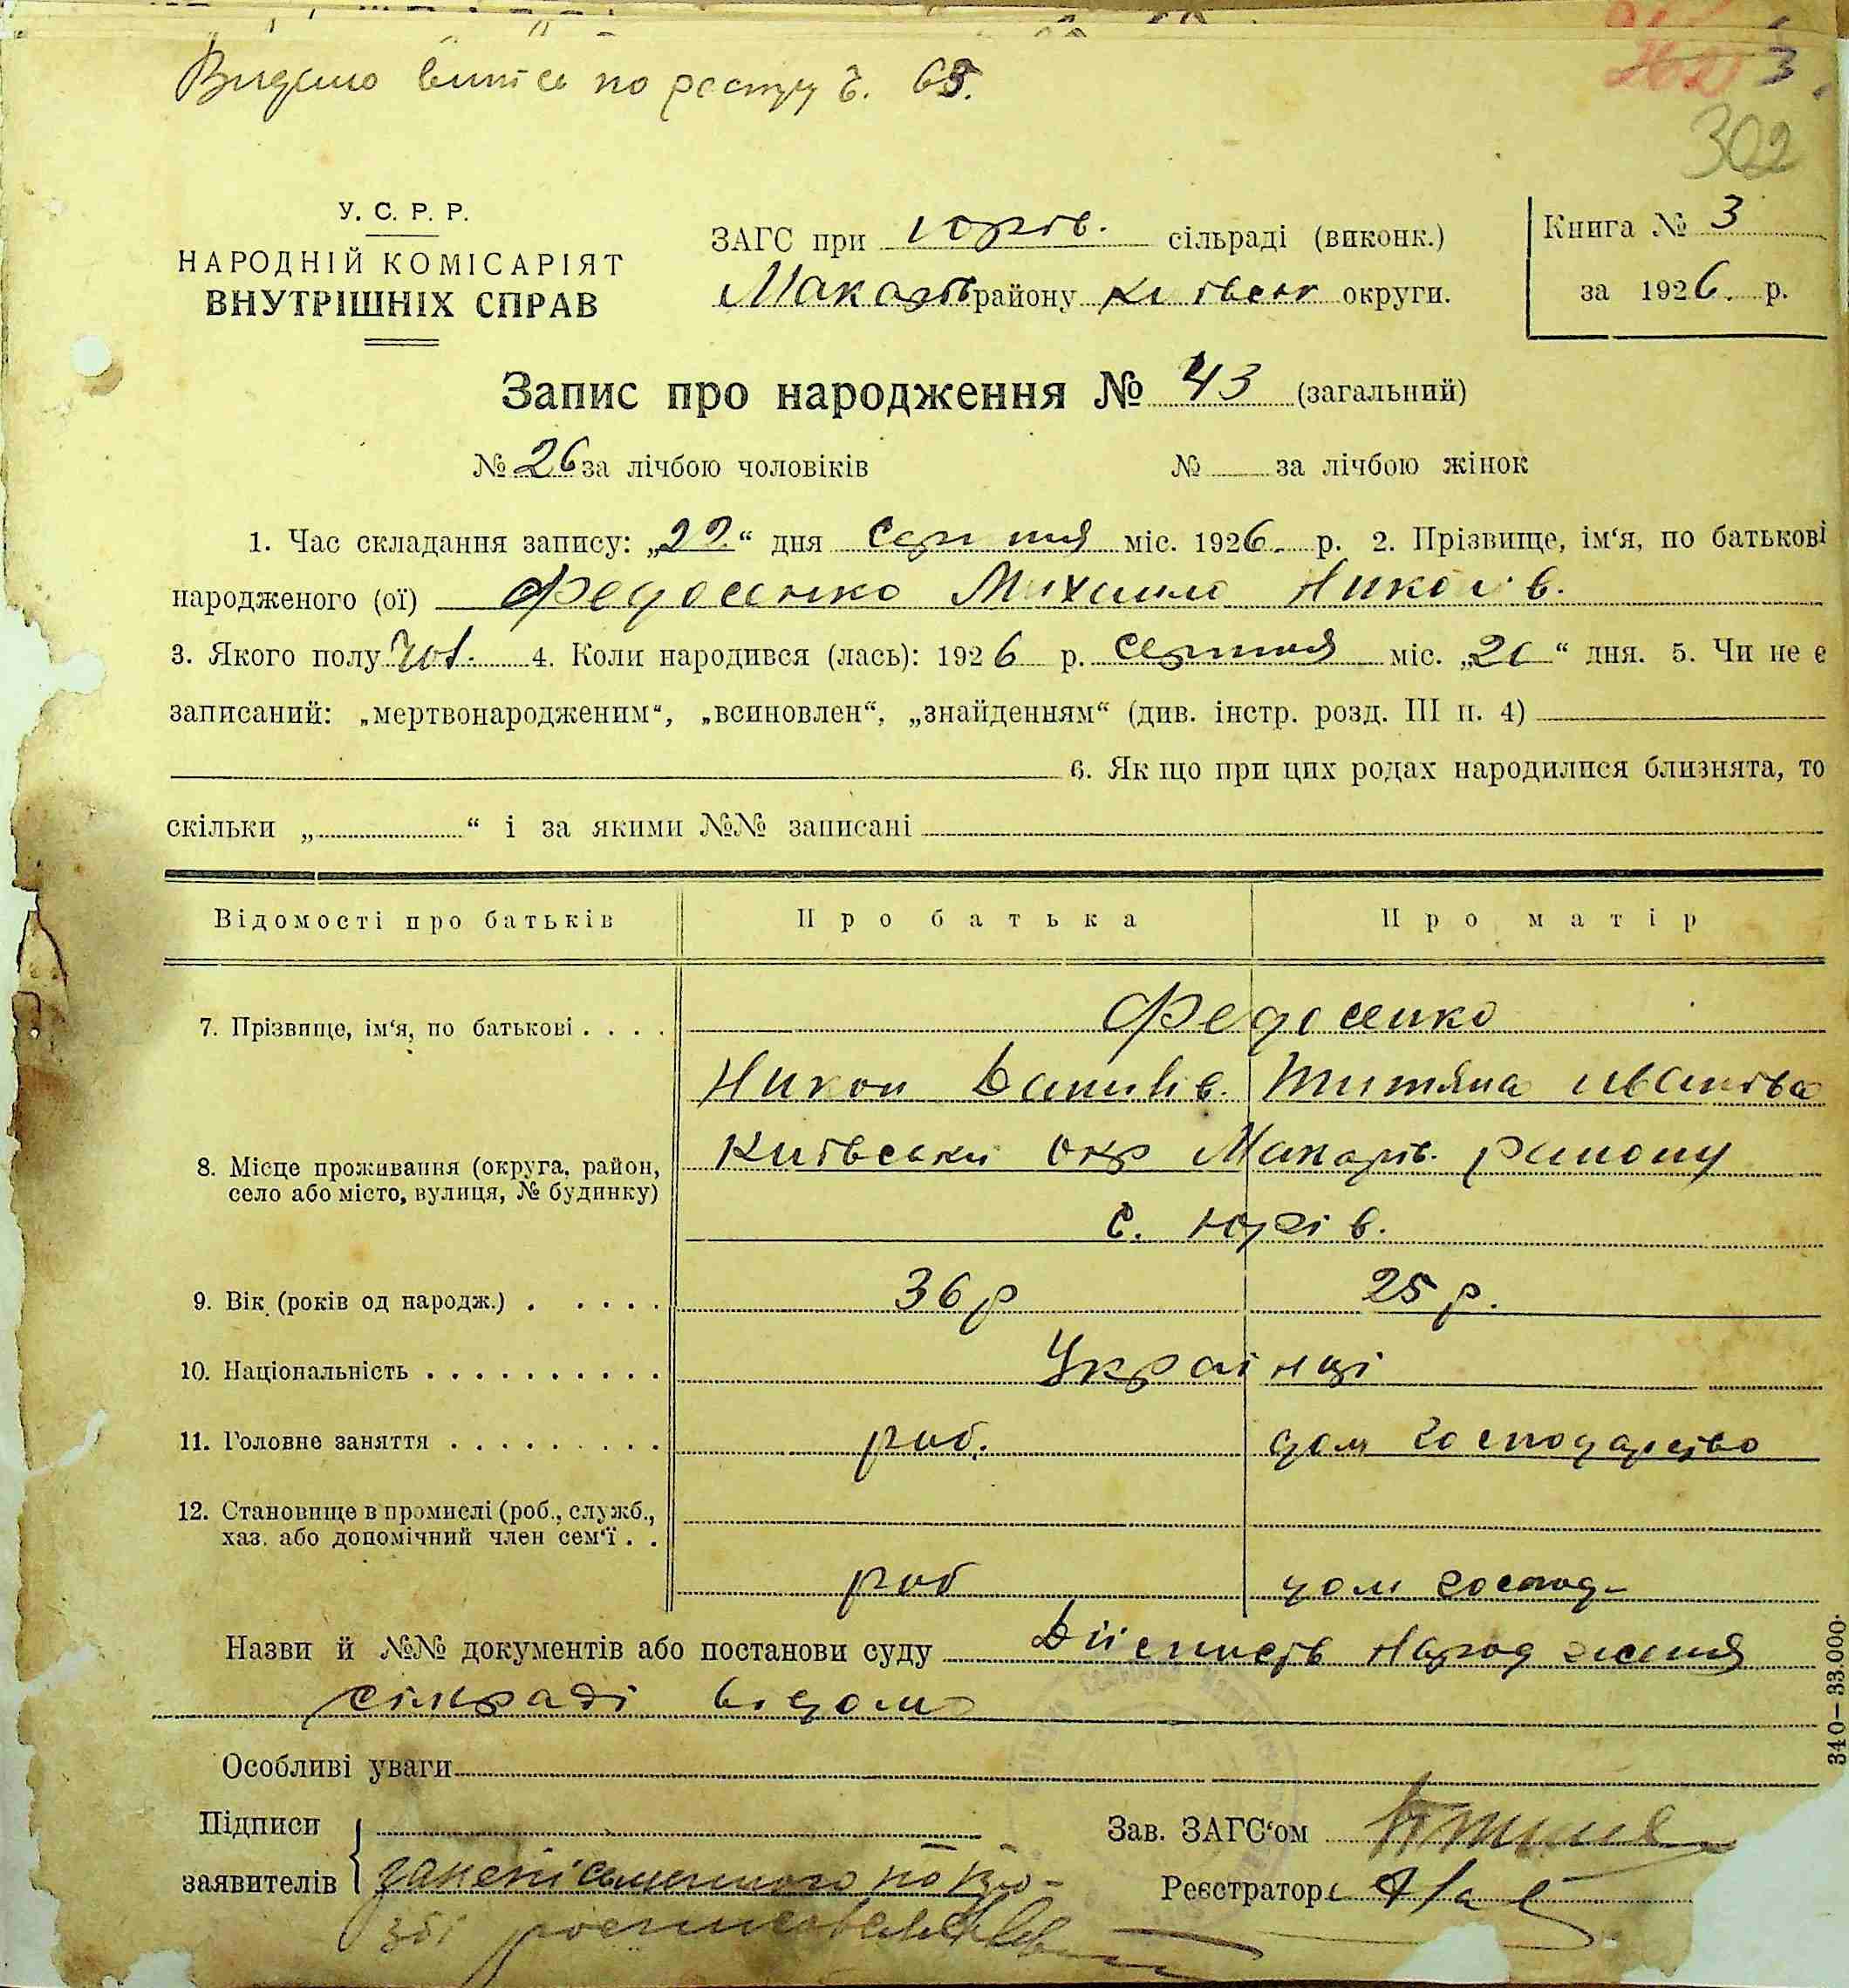 Видано витяг по реєстру č. 65.
302
У. С. Р. Р.
НАРОДНІЙ КОМІСАРІЯТ
ВНУТРІШНІХ СПРАВ
ЗАГС при Юрів. сільраді (виконк.)
Макарів району Київськ округи.
Книга № 3
за 1926. р.
Запис про народження № 43 (загальний)
№ 26 за лічбою чоловіків № за лічбою жінок
1. Час складання запису: „22.“ дня серпня міс. 1926. р. 2. Прізвище, ім‘я, по батькові
народженого (ої) Федосенко Михайло Никон в.
3. Якого полу чол. 4. Коли народився (лась): 1926 р. серпня міс. „ “ дня. 5. Чи не є
записаний: „мертвонародженим“, „всиновлен“, „знайденням“ (див. інстр. розд. III п. 4)
6. Як що при цих родах народилися близнята, то
скільки „ “ і за якими №№ записані
Відомості про батьків Про батька Про матір
7. Прізвище, ім‘я, по батькові . . . . Федосенко
Никон Данилів. Титяна Іванівна
8. Місце проживання (округа, район,
село або місто, вулиця, № будинку)
Київськи окр Макарів. району
с. Юрів.
9. Вік (років од народж.) . . . . . 36 р 25 р.
10. Національність . . . . . . . . . . Українці
11. Головне заняття . . . . . . . . . роб. дом господарство
12. Становище в промислі (роб., служб.,
хаз. або допомічний член сем‘ї . .
роб дом господ-
Назви й №№ документів або постанови суду Дійсність народження
сільраді відомо
Особливі уваги
Підписи
заявителів
за неписьменного по
Зав. ЗАГС‘ом
Реєстратор
340—33.000.